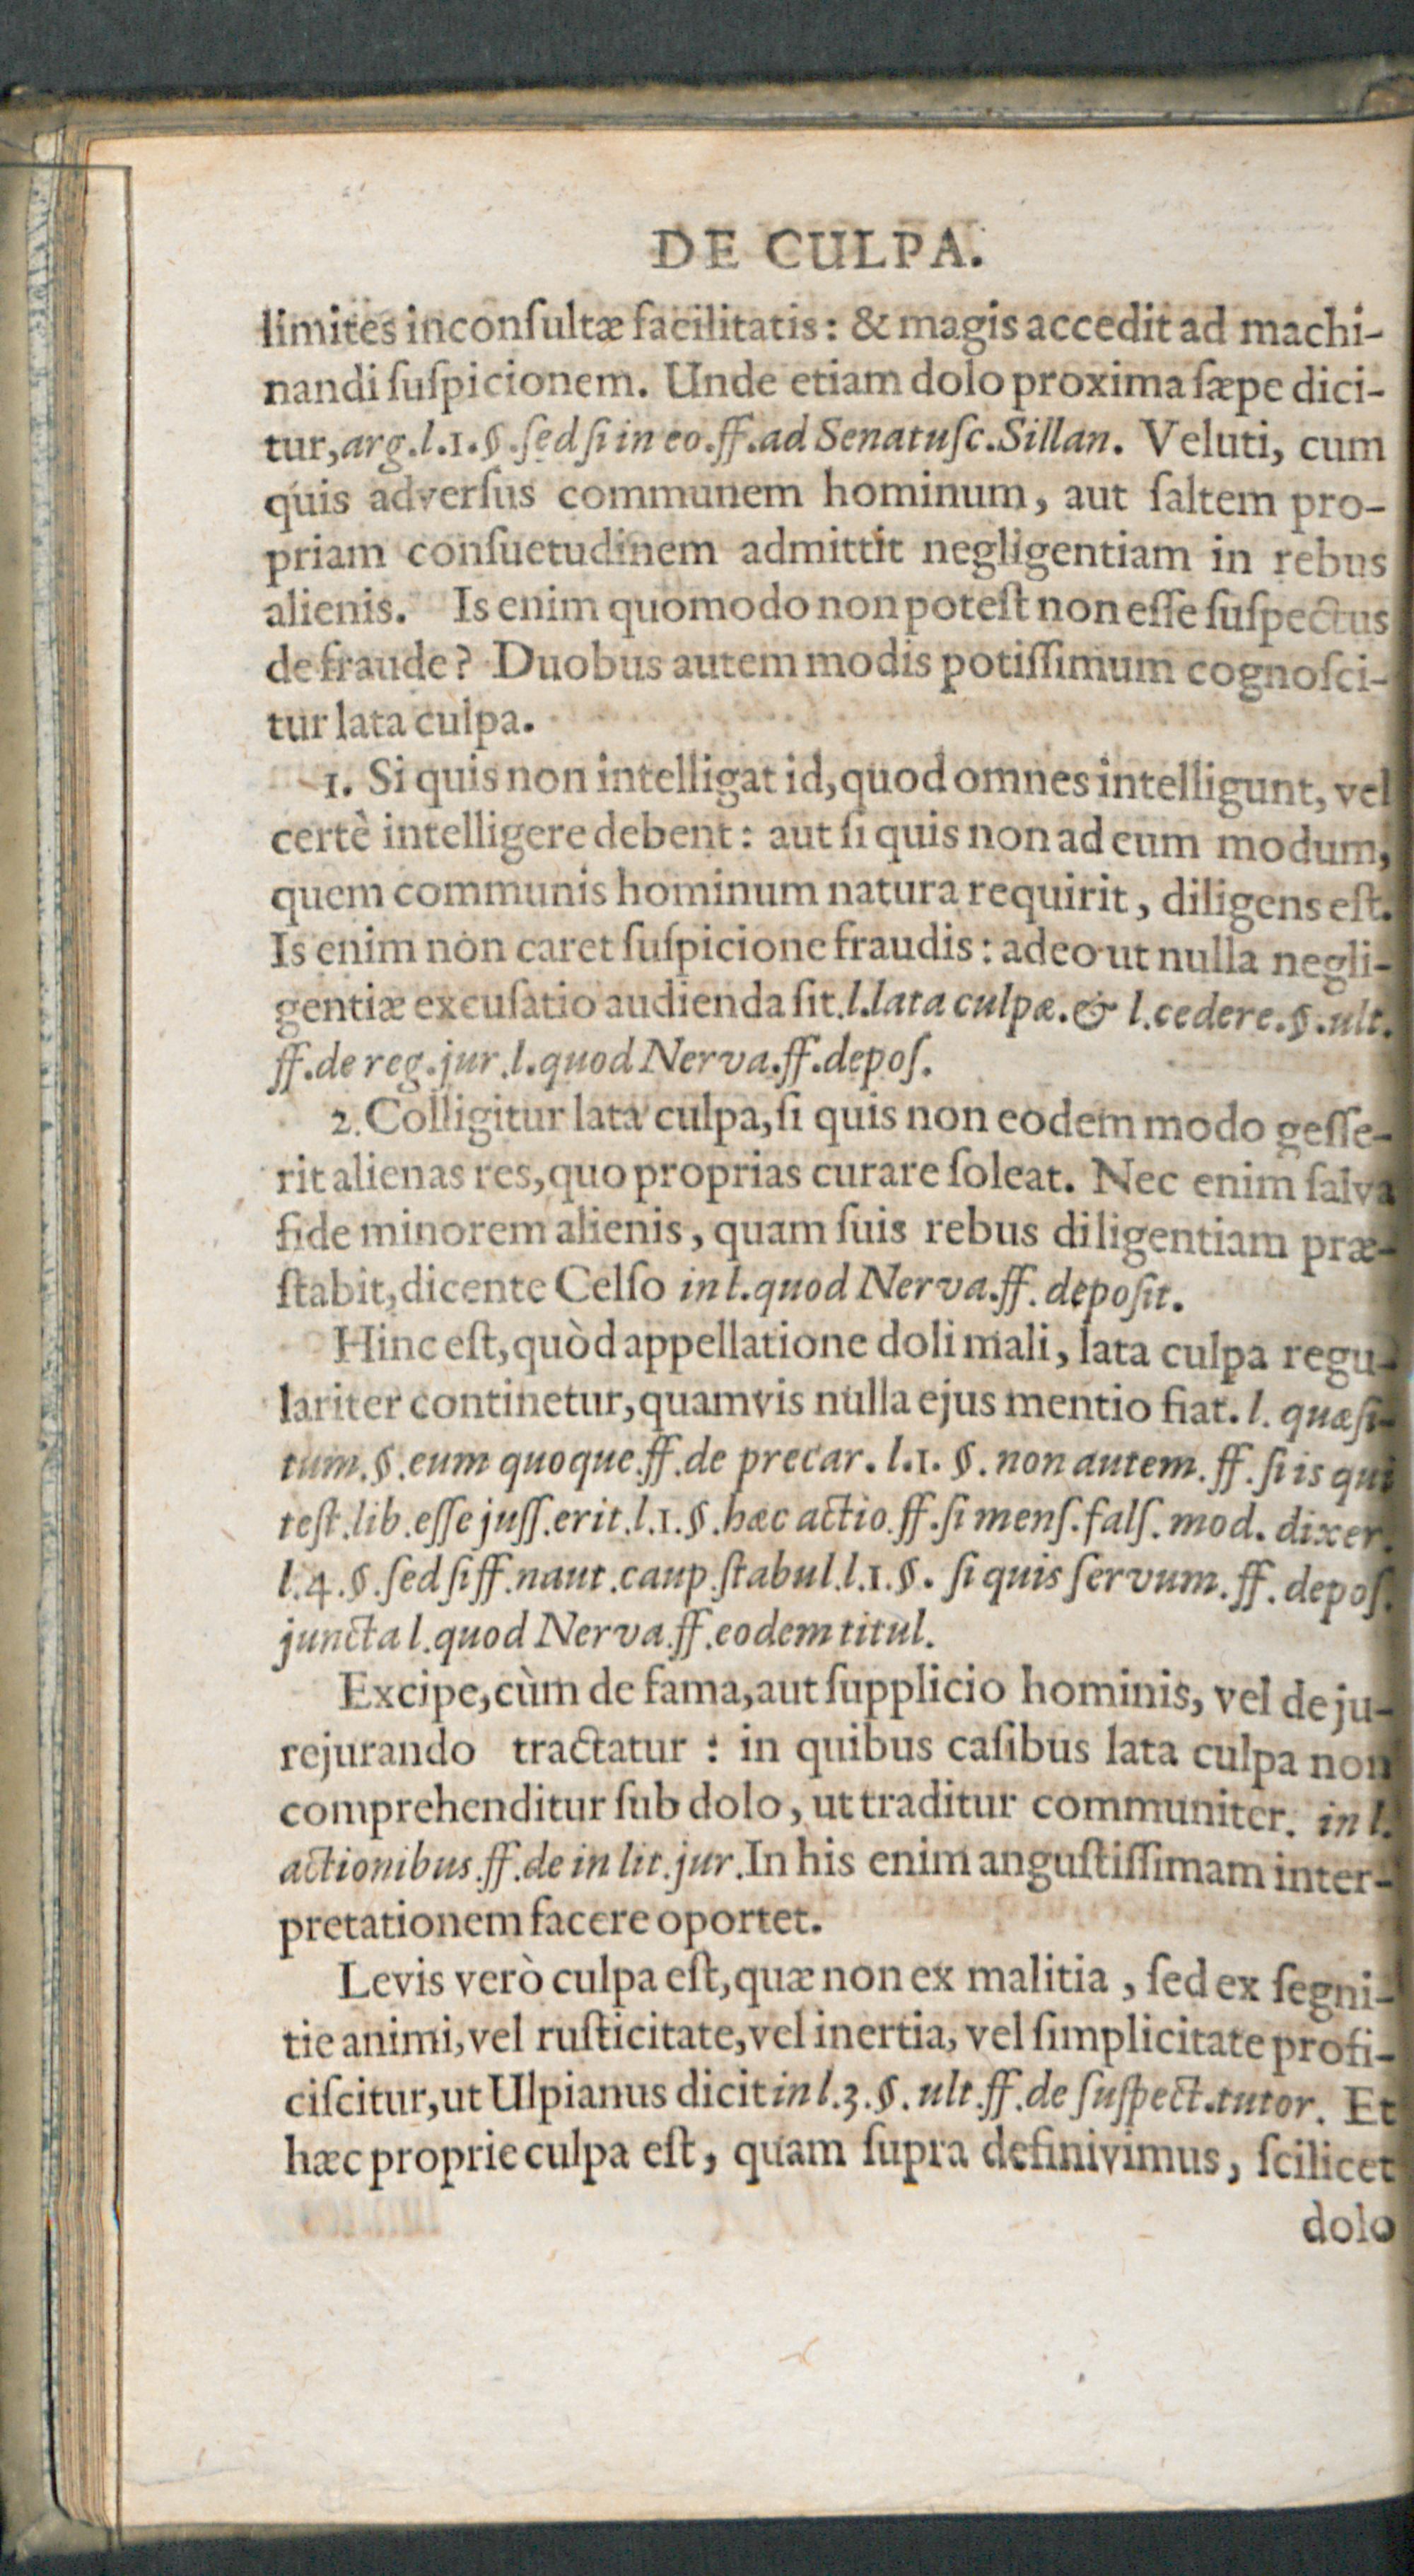 DE CULPA.
limites inconſultæ facilitatis: & magis accedit ad machi-
nandi ſuſpicionem. Unde etiam dolo proxima ſæpe dici-
tur, arg.l.1.§.ſed ſi in eo.ff.ad Senatuſc.Sillan. Veluti, cum
quis adverſus communem hominum, aut ſaltem pro-
priam conſuetudinem admittit negligentiam in rebus
alienis. Is enim quomodo non poteſt non eſſe ſuſpectus
de fraude? Duobus autem modis potiſſimum cognoſci-
tur lata culpa.
1. Si quis non intelligat id, quod omnes intelligunt, vel
certè intelligere debent: aut ſi quis non ad eum modum,
quem communis hominum natura requirit, diligens eſt.
Is enim non caret ſuſpicione fraudis: adeo ut nulla negli-
gentiæ excuſatio audienda ſit.l.lata culpæ.& l.cedere.§.ult.
ff.de reg.jur.l.quod Nerva.ff.depoſ.
2. Colligitur lata culpa, ſi quis non eodem modo geſſe-
rit alienas res, quo proprias curare ſoleat. Nec enim ſalva
fide minorem alienis, quam ſuis rebus diligentiam præ-
ſtabit, dicente Celſo in l.quod Nerva.ff. depoſit.
Hinc eſt, quòd appellatione doli mali, lata culpa regu-
lariter continetur, quamvis nulla ejus mentio fiat. l. quæſi-
tum.§.eum quoque.ff.de precar. l.1. §. non autem. ff. ſi is qui
teſt.lib.eſſe juſſ.erit.l.1.§.hæc actio.ff.ſi menſ.falſ. mod. dixer.
l.4.§.ſed ſi ff.naut.caup.ſtabul.l.1.§. ſi quis ſervum. ff. depoſ.
juncta l.quod Nerva.ff.eodem titul.
Excipe, cùm de fama, aut ſupplicio hominis, vel de ju-
rejurando tractatur: in quibus caſibus lata culpa non
comprehenditur ſub dolo, ut traditur communiter. in l.
actionibus.ff.de in lit.jur. In his enim anguſtiſſimam inter-
pretationem facere oportet.
Levis verò culpa eſt, quæ non ex malitia, ſed ex ſegni-
tie animi, vel ruſticitate, vel inertia, vel ſimplicitate profi-
ciſcitur, ut Ulpianus dicit in l.3.§. ult.ff.de ſuſpect.tutor. Et
hæc proprie culpa eſt, quam ſupra definivimus, ſcilicet
dolo